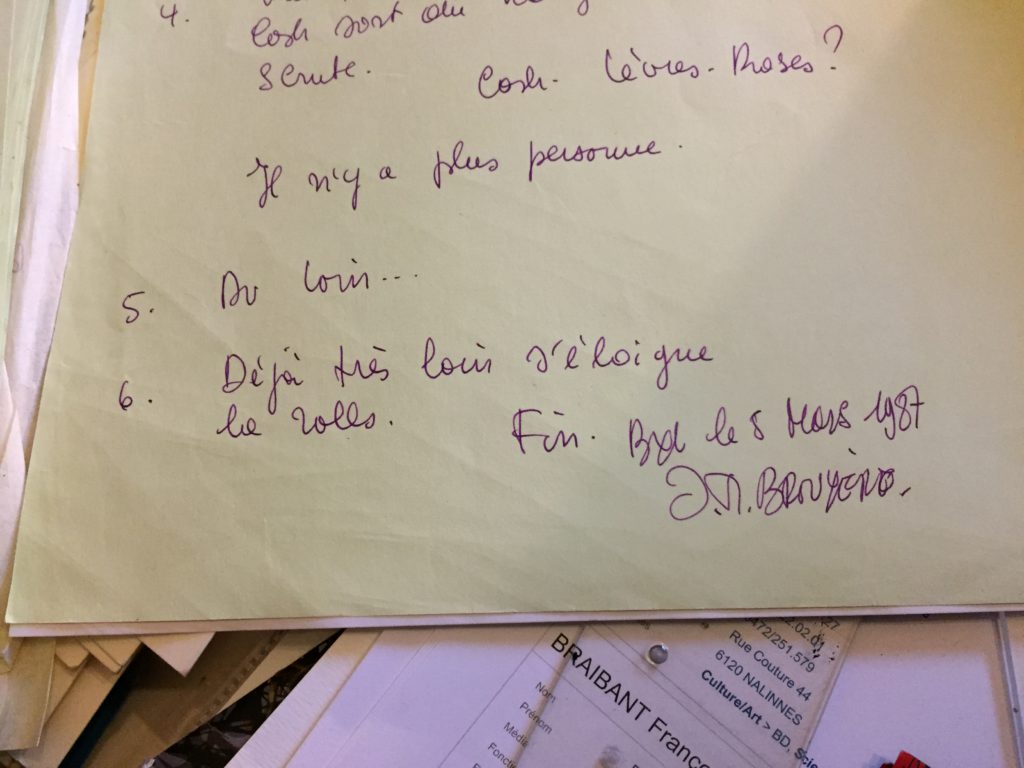 4.
Cosh sort du
Scrute. Cosh. Lèvres-Roses?
Il n'y a plus personne.
5. Au loin...
6. Déjà très loin s'éloigne
la rolls. Fin. Bxl le 8 Mars 1987
J.M. BRUYÈRE.
27
02.02.01
0472/251.579
Rue Couture 44
6120 NALINNES
Culture/Art > BD, Scie
BRAIBANT Franço
Nom
Prénom
Média
Foncti